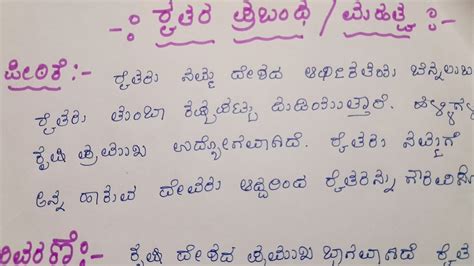 -: ರೈತರ ಪ್ರಬಂಧ / ಮಹತ್ವ :-
ಪೀಠಿಕೆ:- ರೈತರು ನಮ್ಮ ದೇಶದ ಆರ್ಥಿಕತೆಯ ಬೆನ್ನೆಲುಬು
ರೈತರು ತುಂಬಾ ಕಷ್ಟಪಟ್ಟು ದುಡಿಯುತ್ತಾರೆ. ಹಳ್ಳಿಗಳ
ಕೃಷಿ ಪ್ರಮುಖ ಉದ್ಯೋಗವಾಗಿದೆ. ರೈತರು ನಮ್ಮಗೆ
ಅನ್ನ ಹಾಕುವ ದೇವರು ಆದ್ದರಿಂದ ರೈತರನ್ನು ಗೌರವಿಸ
ವಿವರಣೆ:- ಕೃಷಿ ದೇಶದ ಪ್ರಮುಖ ಭಾಗವಾಗಿದೆ ರೈತ